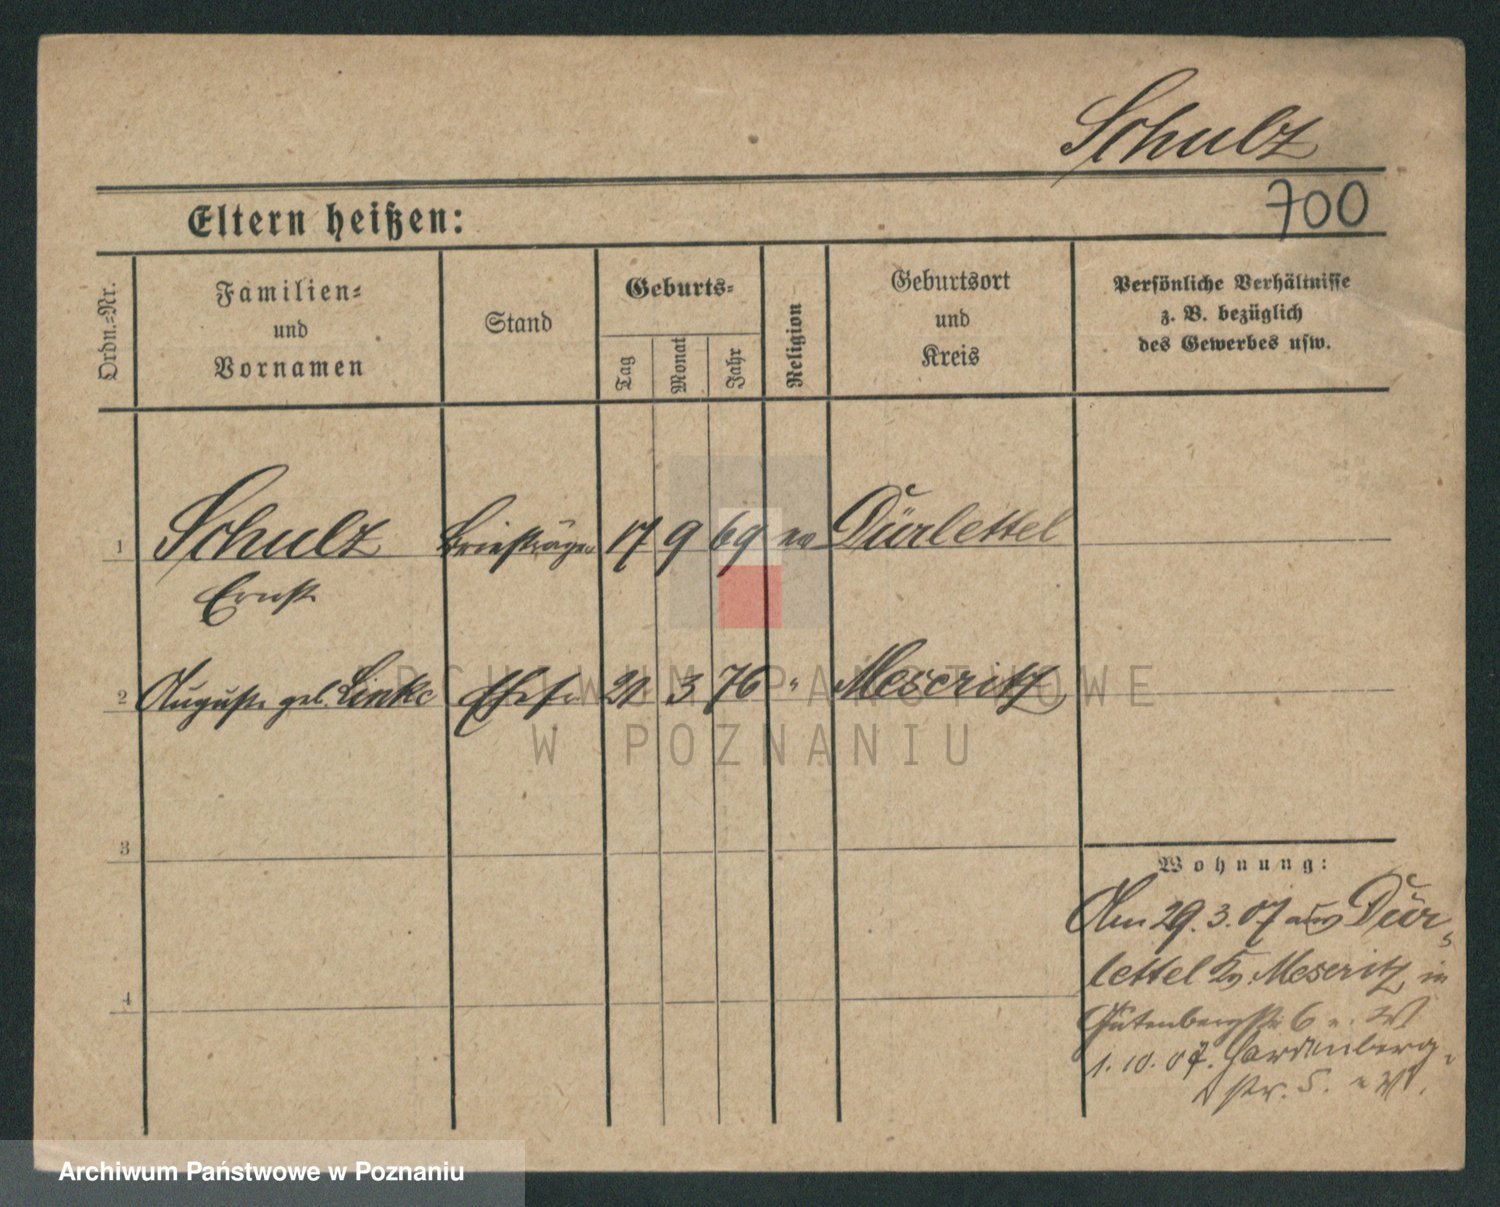 Schulz
Eltern heißen:
700
Ordn.=Nr.
Familien=
und
Vornamen
Stand
Geburts=
Tag
Monat
Jahr
Religion
Geburtsort
und
Kreis
Persönliche Verhältnisse
z. B. bezüglich
des Gewerbes usw.
1 Schulz Briefträger 17 9 69 ev Dürlettel
Ernst
2 Auguste geb. Linke Ehefr 21 3 76 " Meseritz
3
4
Wohnung:
Am 29.3.07 aus Dür-
lettel Kr. Meseritz in
Gutenbergstr 6
1.10.07. Hardenberg-
str. 5.
ARCHIWUM PAŃSTWOWE
W POZNANIU
Archiwum Państwowe w Poznaniu